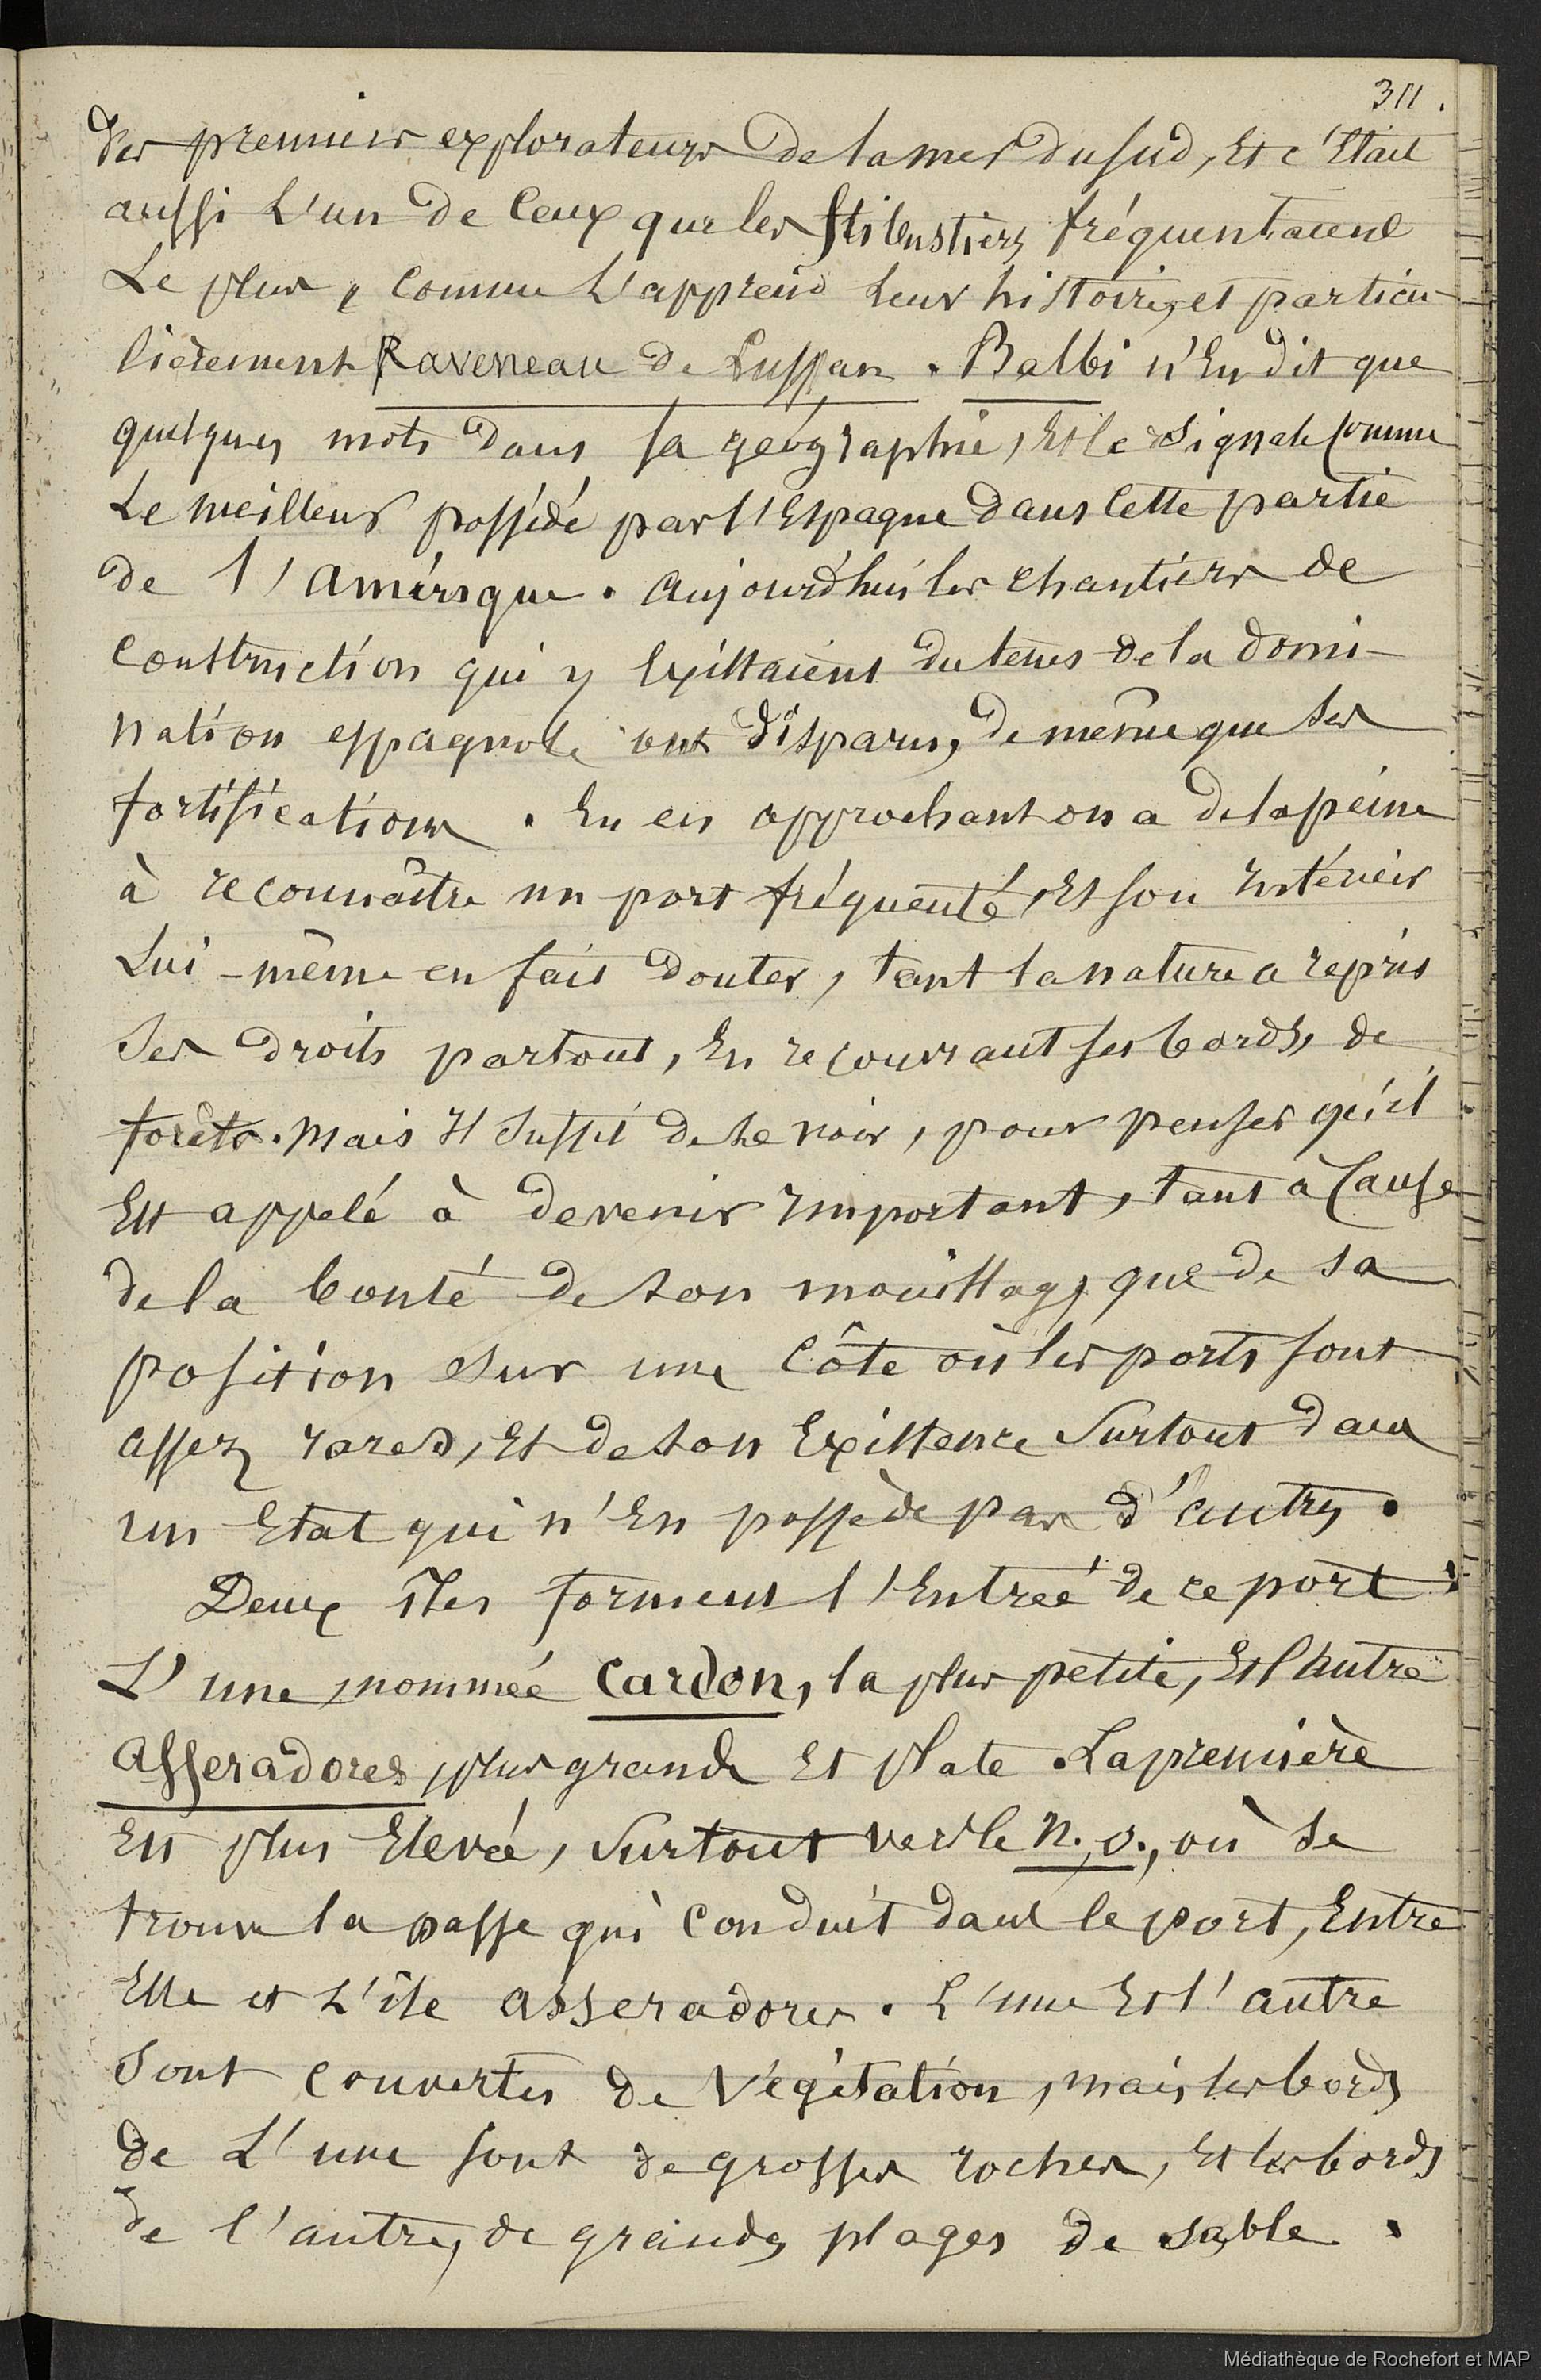 311.
des premiers explorateurs de la mer du sud, Et c'Etait
aussi L'un de Ceux que les flibustiers fréquentaient
Le plus, Comme L'apprend Leur histoire, et particu-
lièrement Raveneau de Lussan. Balbi n'En dit que
quelques mots dans sa géographie, Et le Signale Comme
Le meilleur possédé par l'Espagne dans Cette partie
de l'amérique. aujourd'hui les chantiers de
Construction qui y Existaient du tems de la domi-
nation espagnole ont disparu, de même que ses
fortifications. En en approchant on a de la peine
à reconnaître un port fréquenté, Et son Intérieur
Lui-même en fait douter, tant la nature a repris
Ses droits partout, En recouvrant ses bords, de
forêts. Mais Il Suffit de le voir, pour penser qu'il
Est appelé à devenir Important, tant à Cause
de la bonté de son mouillage, que de sa
position sur une Côte où les ports sont
assez rares, Et de son Existence Surtout dans
un Etat qui n'En possède pas d'autres.
Deux îles forment l'Entrée de ce port:
L'une, nommée Cardon, la plus petite, Et l'autre
Asseradores, plus grande Et plate. La première
Est plus Elevée, Surtout vers le N.O., où se
trouve la passe qui Conduit dans le port, Entre
Elle et L'île Asseradores. L'une Et l'autre
Sont Couvertes de Végétation, mais les bords
de L'une sont de grosses roches, Et les bords
de l'autre, de grandes plages de sable.
Médiathèque de Rochefort et MAP